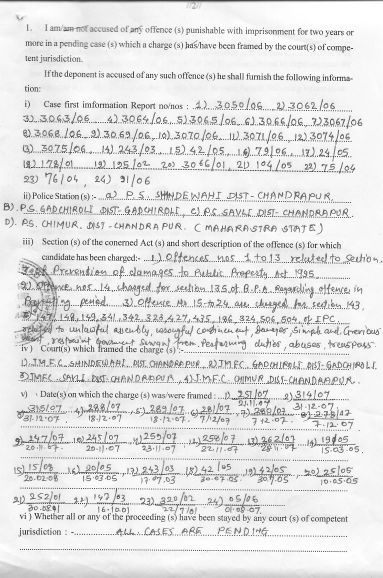 1. I am/am not accused of any offence (s) punishable with imprisonment for two years or
more in a pending case (s) which a charge (s) has/have been framed by the court(s) of compe-
tent jurisdiction.
If the deponent is accused of any such offence (s) he shall furnish the following informa-
tion:
i) Case first imformation Report no/nos : 1) 3050/06 2) 3062/06
3) 3063/06 4) 3064/06 5) 3065/06 6) 3066/06 7) 3067/06
8) 3068/06 9) 3069/06 10) 3070/06 11) 3071/06 12) 3074/06
13) 3075/06 14) 243/03 15) 42/05 16) 79/06 17) 24/05
18) 178/01 19) 195/02 20) 3066/01 21) 104/05 22) 75/04
23) 76/04 24) 91/06
ii) Police Station(s) :- a) P.S. SHINDEWAHI DIST- CHANDRAPUR
B) P.S. GADCHIROLI DIST- GADCHIROLI, C) P.S. SAVLI DIST- CHANDRAPUR
D) P.S. CHIMUR, DIST- CHANDRAPUR. (MAHARASTRA STATE)
iii) Section (s) of the conerned Act (s) and short description of the offence (s) for which
candidate has been charged:- 1) Offences nos 1 to 13 related to Section
Prevention of damages to Public Property Act 1995
2) Offence nos. 14 charged for section 135 of B.P.A. Regarding offence in
period 3) Offence No. 15 to 24 are charged for section 143,
147, 148, 149, 341, 342, 323, 427, 435, 186, 324, 506, 504 of IPC
related to unlawful assembly, wrongful confinement, Simple and Grevious
restraint goverment Servant from Performing duties, abuses, trespass
iv) Court(s) which framed the charge (s)
1) J.M.F.C. SHINDEWAHI DIST CHANDRAPUR 2) JMFC GADCHIROLI DIST- GADCHIROLI
3) JMFC SAVLI DIST CHANDRAPUR 4) J.M.F.C CHIMUR DIST- CHANDRAPUR.
v) Date(s) on which the charge (s) was/were framed : 1) 251/07 2) 314/07
31.12.07
3) 315/07 4) 288/07 5) 289/07 6) 281/07 7) 280/07 8) 278/07
31.12.07 18.12.07 18.12.07 7/12/07 7.12.07 7.12.07
9) 247/07 10) 245/07 11) 259/07 12) 258/07 13) 262/07 14) 190/05
20.11.07 20.11.07 23.11.07 22.11.07 28.11.07 15.03.05
15) 15/08 16) 20/05 17) 243/03 18) 42/05 19) 42/05 20) 25/05
20.02.08 15.03.05 17.07.03 30.07.05 10.05.05
21) 252/01 22) 147/03 23) 320/02 24) 05/06
30.0801 16.10.01 22/7/01 01.08.07
vi) Whether all or any of the proceeding (s) have been stayed by any court (s) of competent
jurisdiction : - ALL CASES ARE PENDING